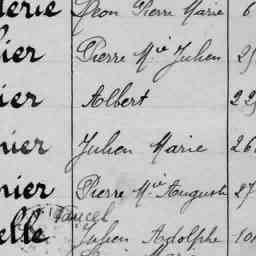 Jean Pierre Marie 6
ier Pierre Mie Julien 25
ier Albert 22
nier Julien Marie 26
nier Pierre Mie Auguste 27
Faucel
elle Julien Adolphe 10